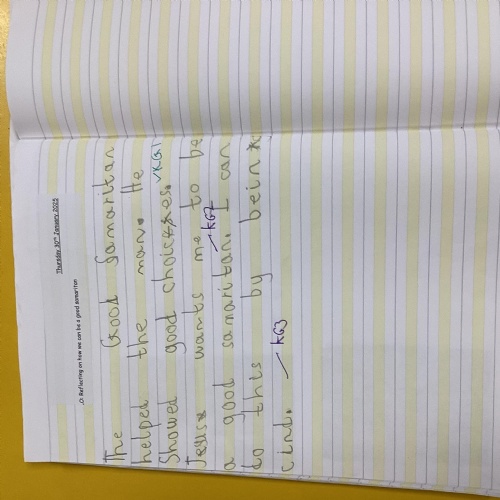 Thursday 30th January 2025
LO: Reflecting on how we can be a good samaritan
The Good Samaritan
helped the man. He
Showed good choices. ✓KG1
Jesus wants me to be
✓KG2
a good samaritan. I can
do this by being
cind. ✓KG3